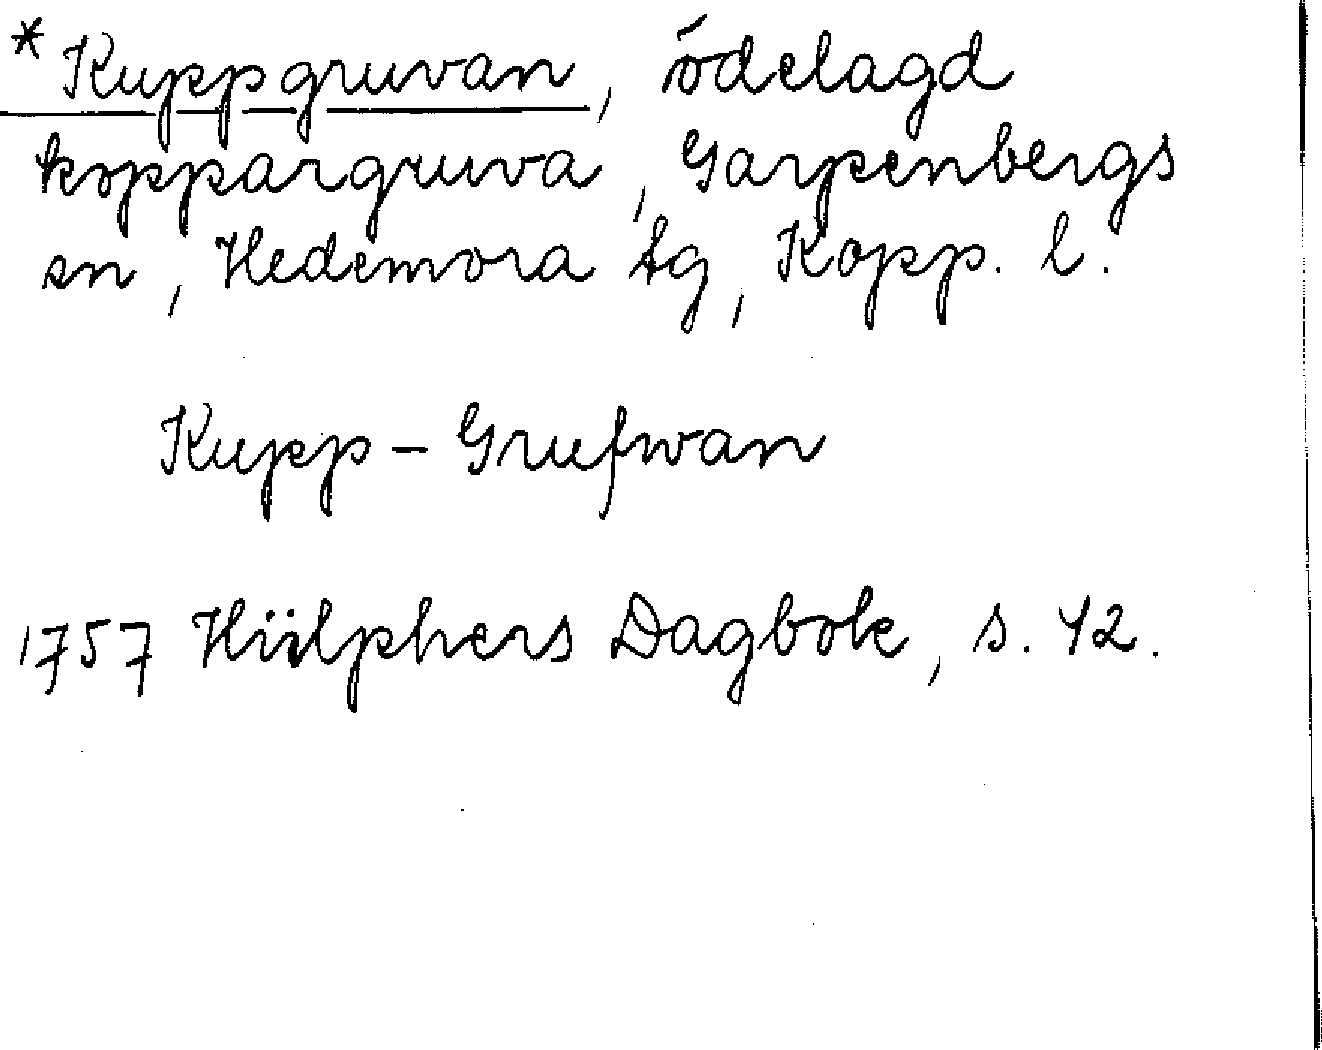 *Kuppgruvan, ödelagd
koppargruva, Garpenbergs
sn, Hedemora tg, Kopp. l.
Kupp-Grufwan
1757 Hülphers Dagbok, s. 42.